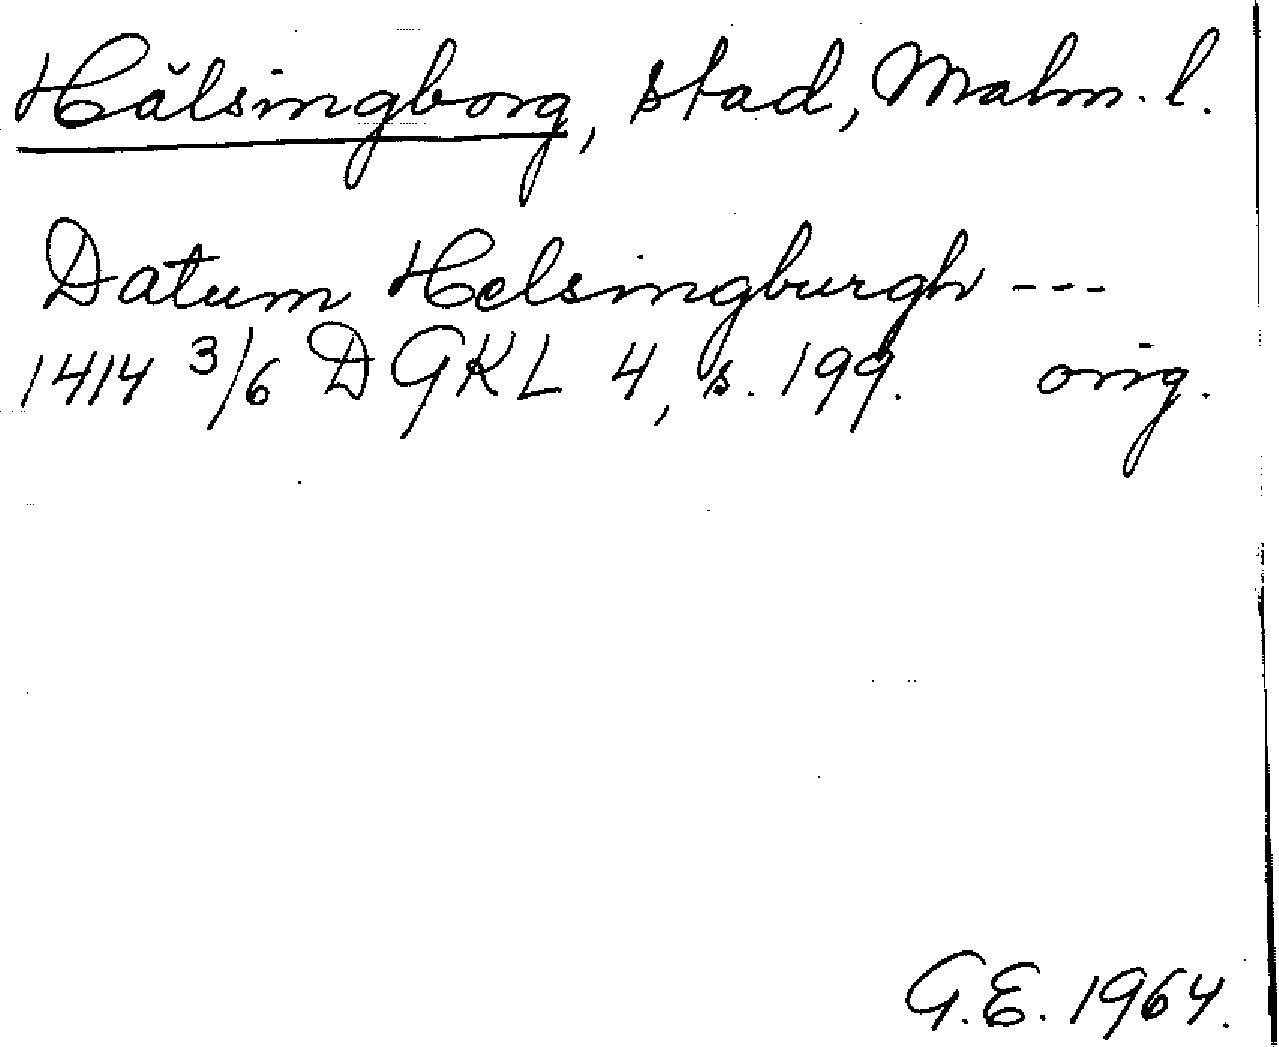 Hälsingborg, stad, Malm. l.
Datum Helsingburgh ---
1414 3/6 DGKL 4, s. 199. orig.
G.E. 1964.